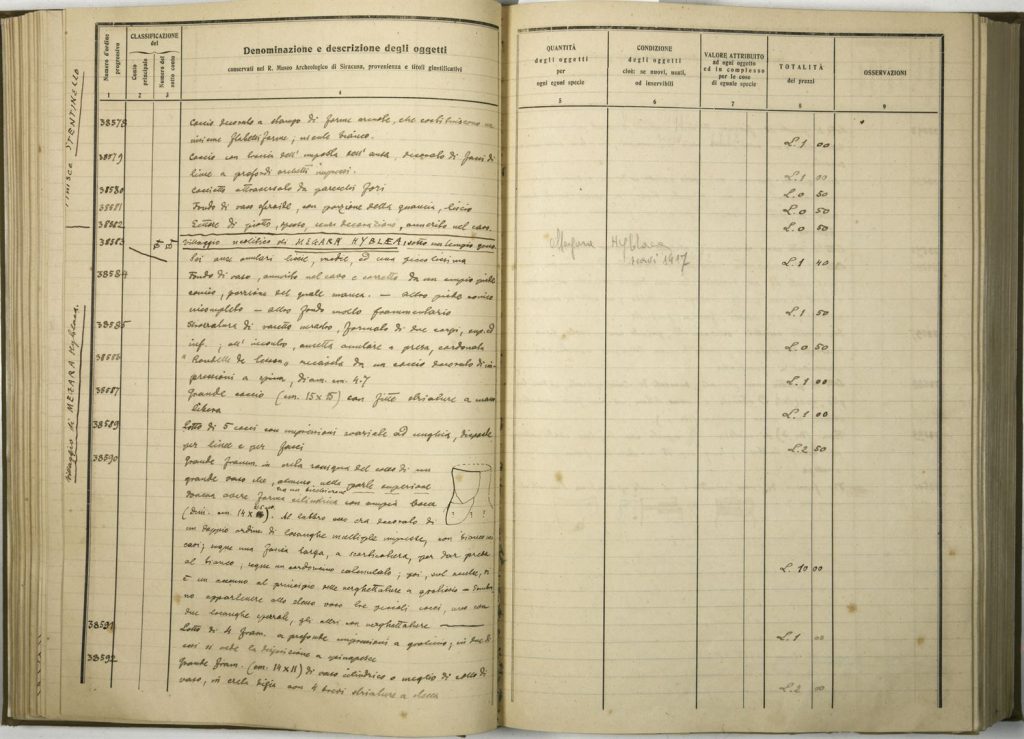 Numero d'ordine progressivo
CLASSIFICAZIONE del
Conto principale
Numero del sotto conto
Denominazione e descrizione degli oggetti
conservati nel R. Museo Archeologico di Siracusa, provenienza e titoli giustificativi
1 2 3 4
STENTINELLO
Villaggio di MEGARA Hyblaea.
38578 Coccio decorato a stampo di forme arcuate, che costituiscono un
insieme flabelliforme; nient bianco.
38579 Coccio con traccia dell' imposta dell' ansa, decorato di fasci di
linee a profondi archetti impressi.
38580 Coccietto attraversato da parecchi fori
38581 Fondo di vaso sferoide, con porzione della guancia, liscio
38582 Settore di piatto, spesso, senza decorazione, annerito nel cavo
38583 Villaggio neolitico di MEGARA HYBLÆA, sotto un tempio greco
anse anulari liscie, medie, ed una piccolissima
38584 Fondo di vaso, annerito nel cavo e corretto da un ampio piede
conico, porzione del quale manca. — altro piede conico
incompleto — altro fondo molto frammentario
38585 di vasetto, formato di due corpi, sup. ed
inf.; all' incontro, ansetta anulare a presa, cordonata
38586 "Rondelle" ricavata da un coccio decorato di im-
pressioni a spina, diam. cm. 4.7
38587 Grande coccio (cm. 15 x 15) con fitte striature a mano
libera
38589 Lotto di 5 cocci con impressioni svariate ad unghia, disposte
per linee e per fasci
38590 Grande framm. in creta del collo di un
grande vaso che, almeno nella parte superiore
doveva avere forma cilindrica con ampia bocca
(dim. cm. 14 x ). Al labbro esso era decorato di
un doppio ordine di losanghe multiple impresse, con bianco nei
cavi; segue una fascia larga, a, per dar presa
al bianco; segue un cordoncino; poi, sul
è un accenno al principio delle verghettature a graticcio —
no appartenere allo stesso vaso tre piccoli cocci, uno con
due losanghe, gli altri con verghettature
38591 Lotto di 4 fram. a profonde impressioni a graticcio; in due di
essi si vede la disposizione a spinapesce
38592 Grande fram. (cm. 14 x 11) di vaso cilindrico o meglio di collo di
vaso, in creta grigia con 4 striature a
QUANTITÀ degli oggetti per ogni egoni specie
CONDIZIONE degli oggetti cioè: se nuovi, usati, od inservibili
VALORE ATTRIBUITO ad ogni oggetto ed in complesso per le cose di eguale specie
TOTALITÀ dei prezzi
OSSERVAZIONI
5 6 7 8 9
L. 1 00
L. 1 00
L. 0 50
L. 0 50
L. 0 50
Megara Hyblaea
scavi 1917
L. 1 40
L. 1 50
L. 0 50
L. 1 00
L. 1 00
L. 2 50
L. 10 00
L. 1 00
L. 2 00